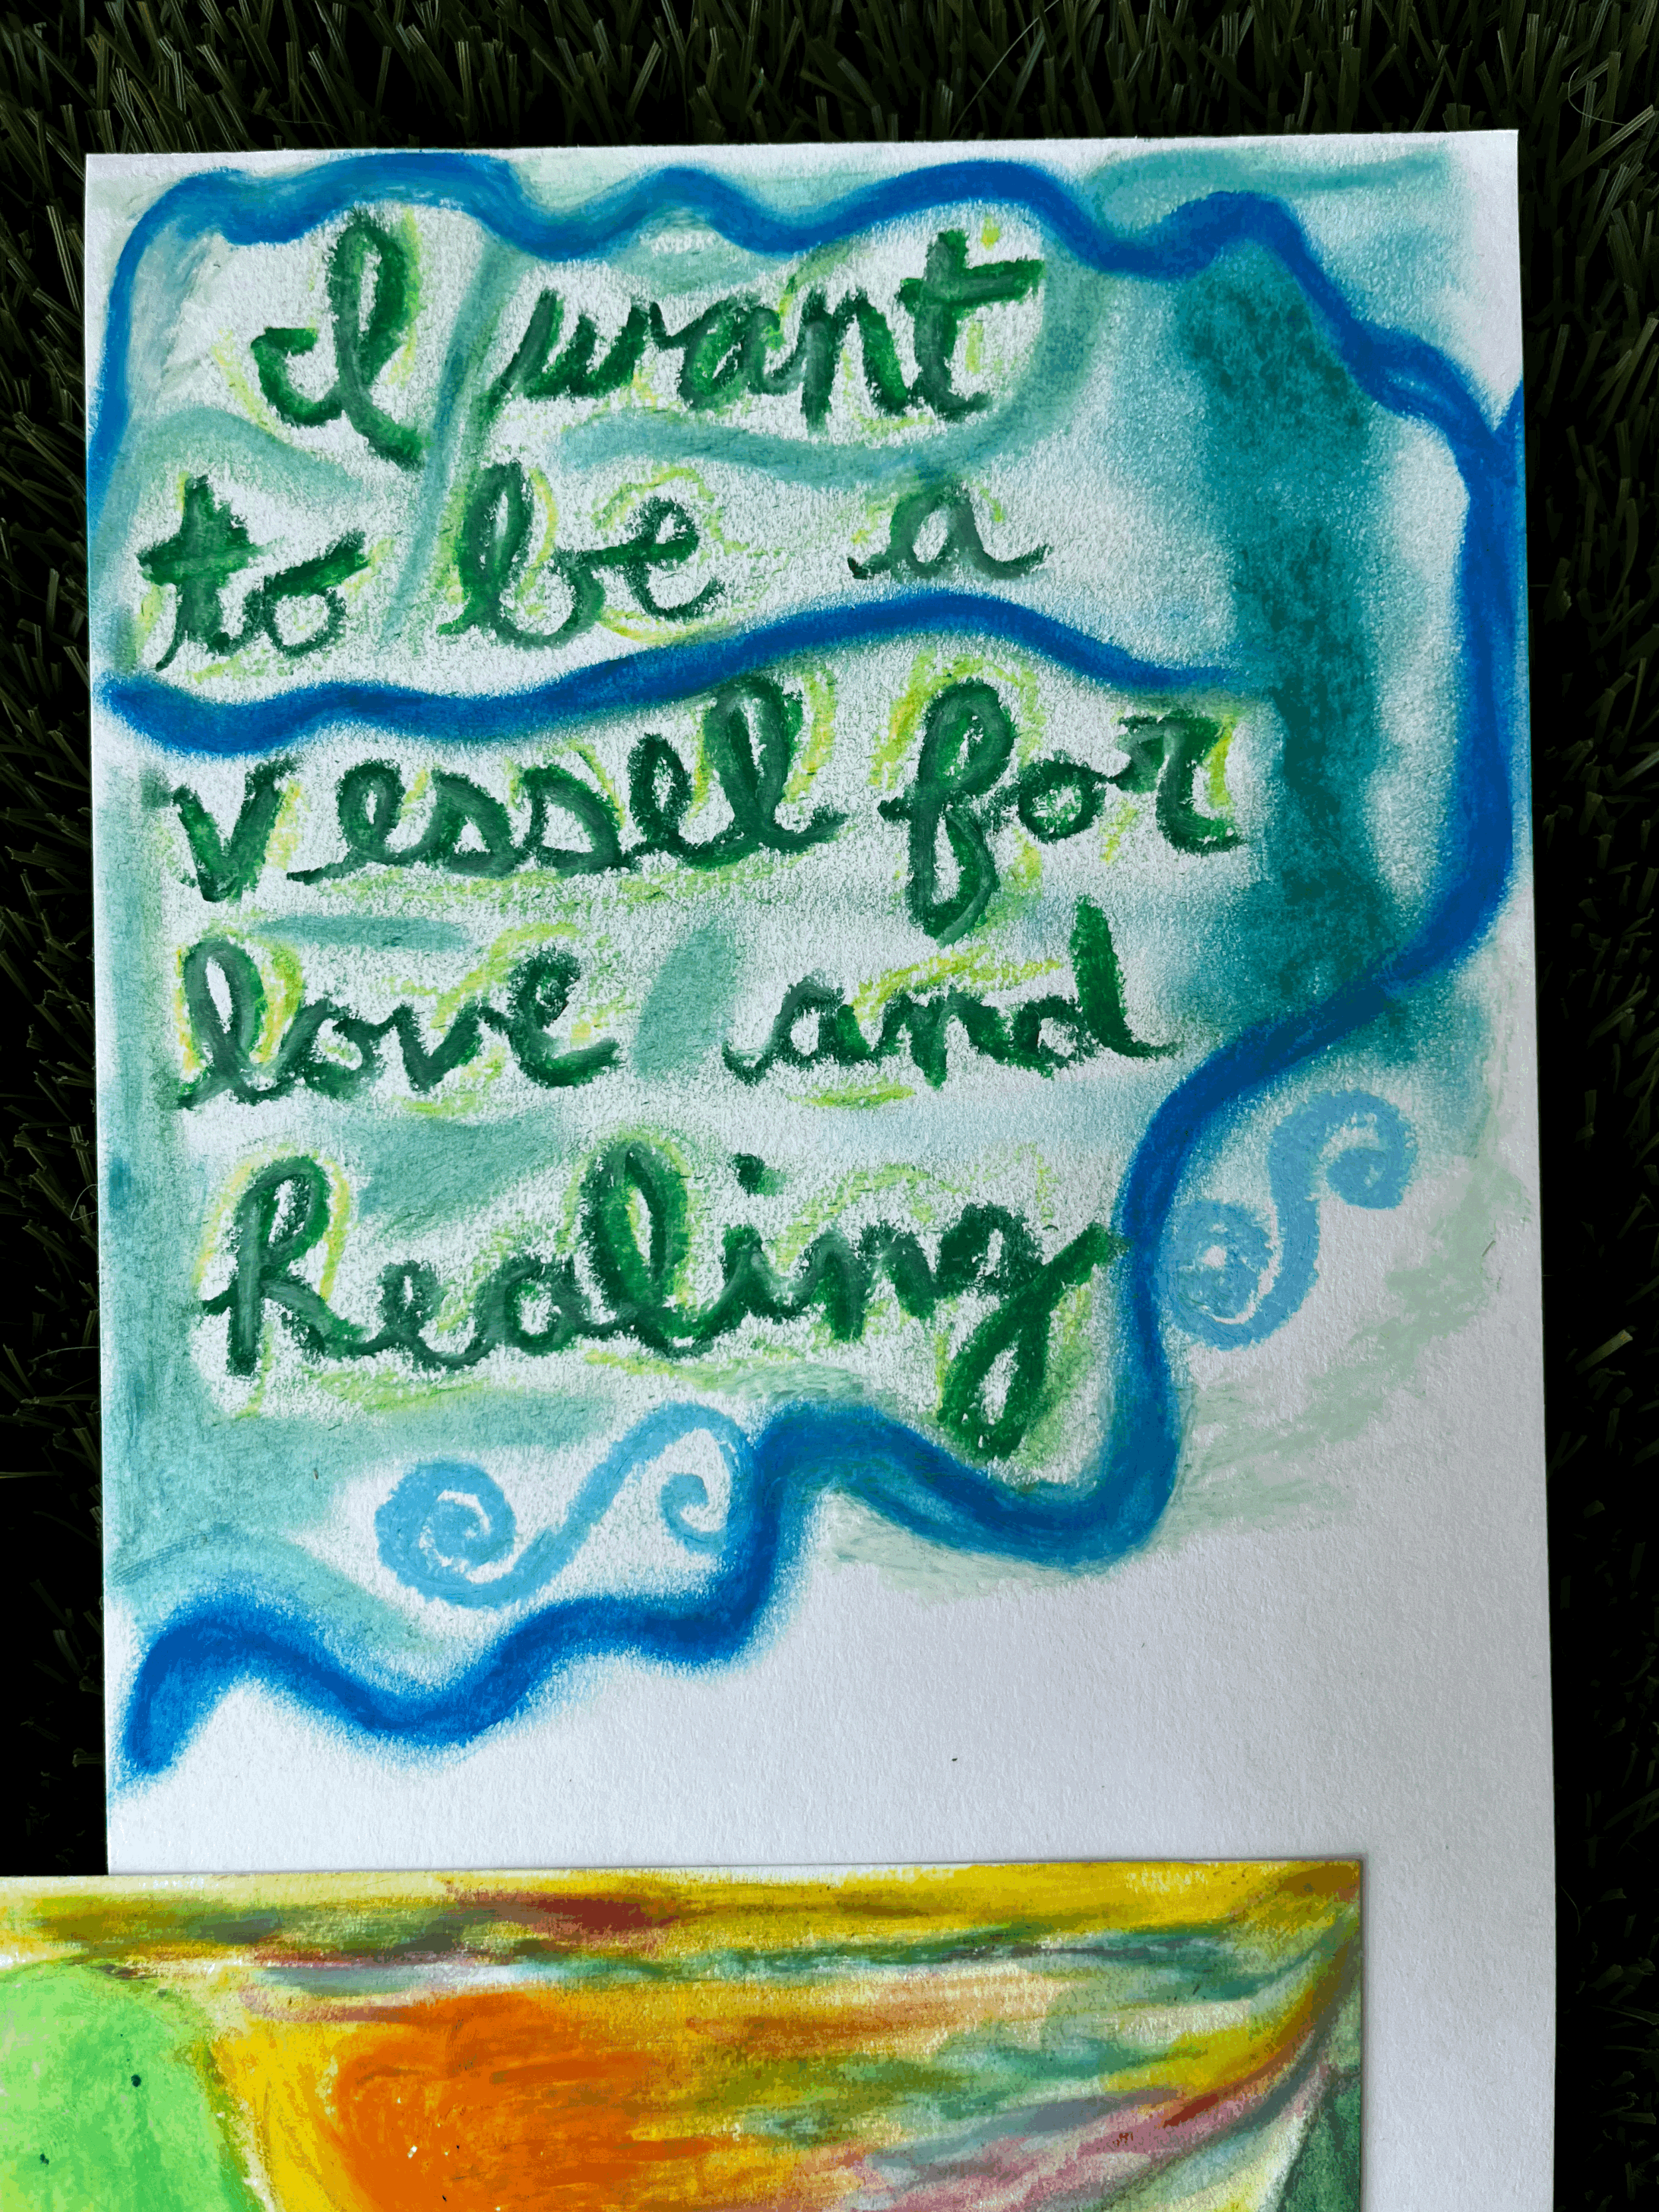 I want
to be a
vessel for
love and
Healing